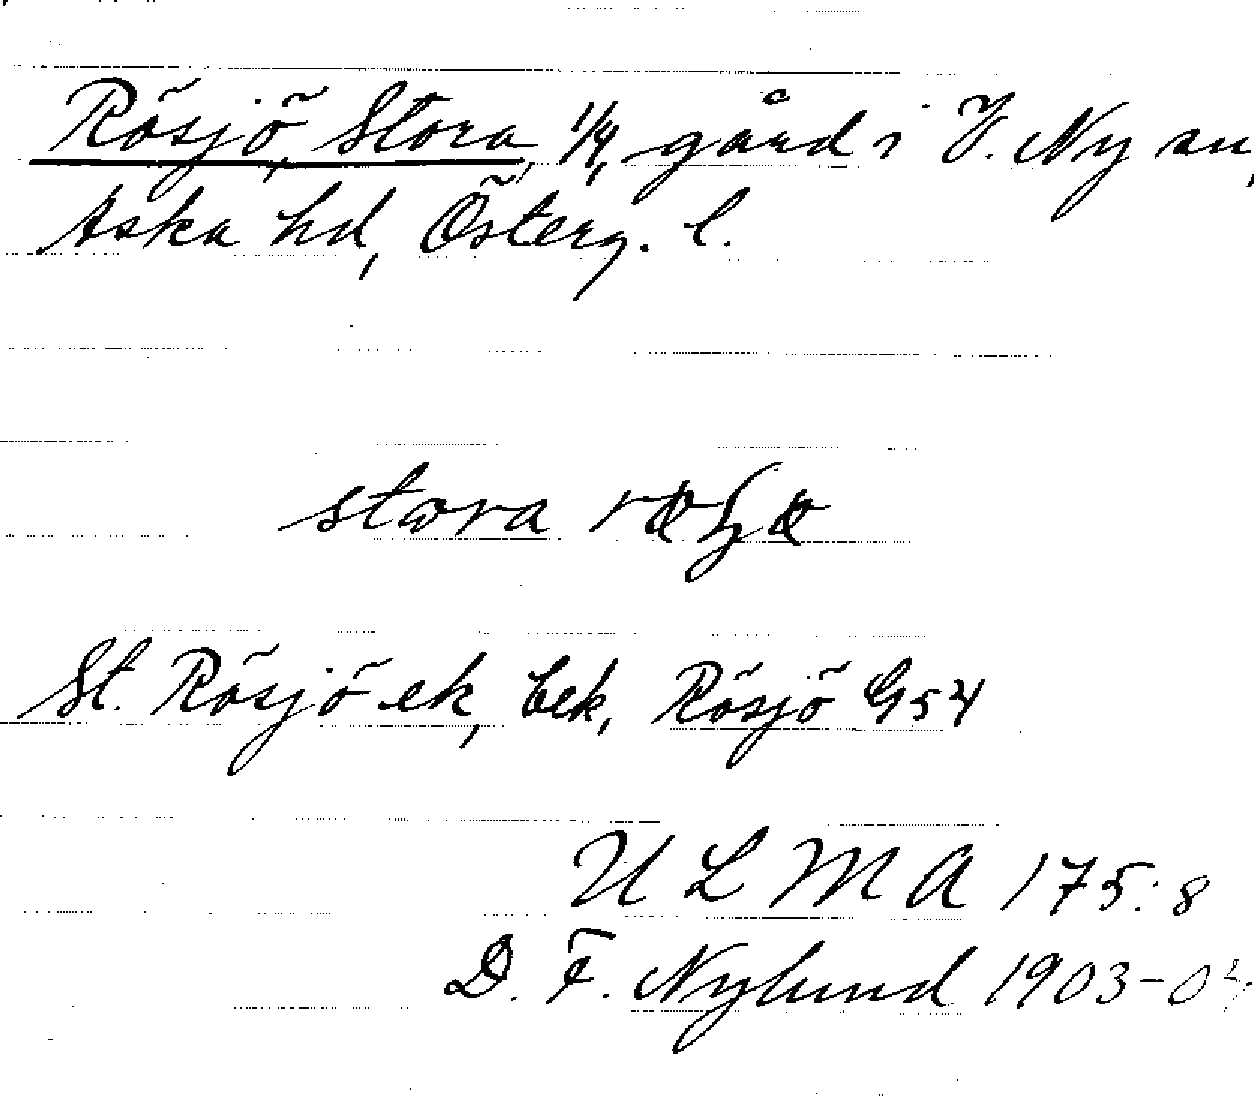 Rösjö, Stora, 1/4, gård i V. Ny sn,
Aska hd, Österg. l.
stora
St. Rösjö ek, bek, Rösjö G54
ULMA 175:8
D. F. Nylund 1903-04